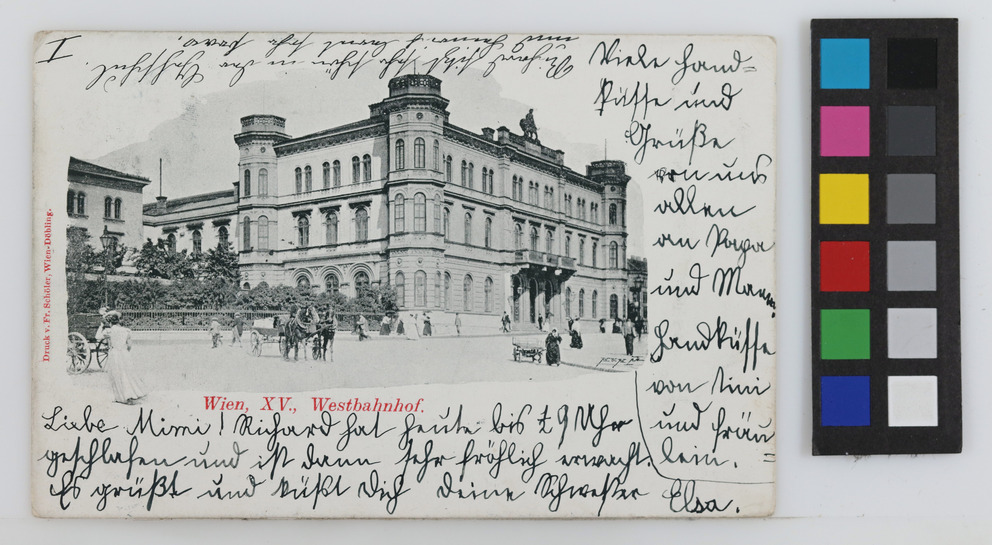 I
Viele Hand=
küsse und
Grüße
von uns
allen
an Papa
und Mama
Handküsse
von Tini
und Fräu
lein. =
Druck v. Fr. Schöler, Wien-Döbling.
Wien, XV., Westbahnhof.
Liebe Mimi! Richard hat heute bis ½ 9 Uhr
geschlafen und ist dann sehr fröhlich erwacht.
Es grüßt und küßt Dich Deine Schwester Elsa.
Richard sehr in der
und